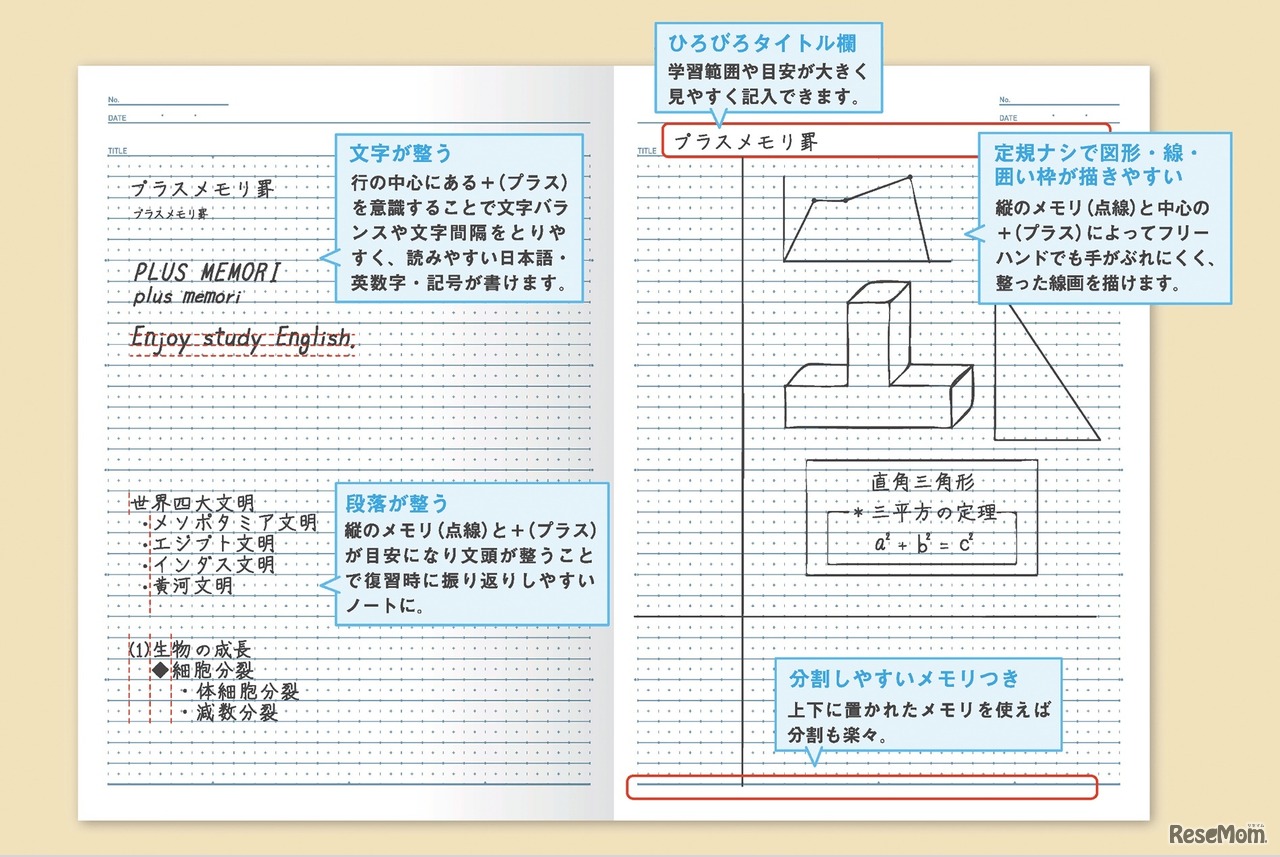 No.
DATE
TITLE
プラスメモリ罫
プラスメモリ罫
PLUS MEMORI
plus memori
Enjoy study English.
文字が整う
行の中心にある+(プラス)
を意識することで文字バラ
ンスや文字間隔をとりや
すく、読みやすい日本語・
英数字・記号が書けます。
世界四大文明
・メソポタミア文明
・エジプト文明
・インダス文明
・黄河文明
段落が整う
縦のメモリ(点線)と+(プラス)
が目安になり文頭が整うこと
で復習時に振り返りしやすい
ノートに。
(1)生物の成長
◆細胞分裂
・体細胞分裂
・減数分裂
ひろびろタイトル欄
学習範囲や目安が大きく
見やすく記入できます。
No.
DATE
TITLE
プラスメモリ罫
定規ナシで図形・線・
囲い枠が描きやすい
縦のメモリ(点線)と中心の
+(プラス)によってフリー
ハンドでも手がぶれにくく、
整った線画を描けます。
直角三角形
*三平方の定理
a² + b² = c²
分割しやすいメモリつき
上下に置かれたメモリを使えば
分割も楽々。
ReseMom.
リセマム